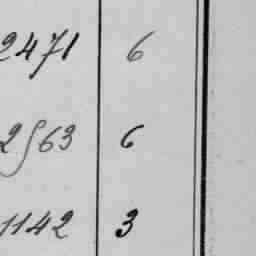 2471 6
2563 6
1142 3